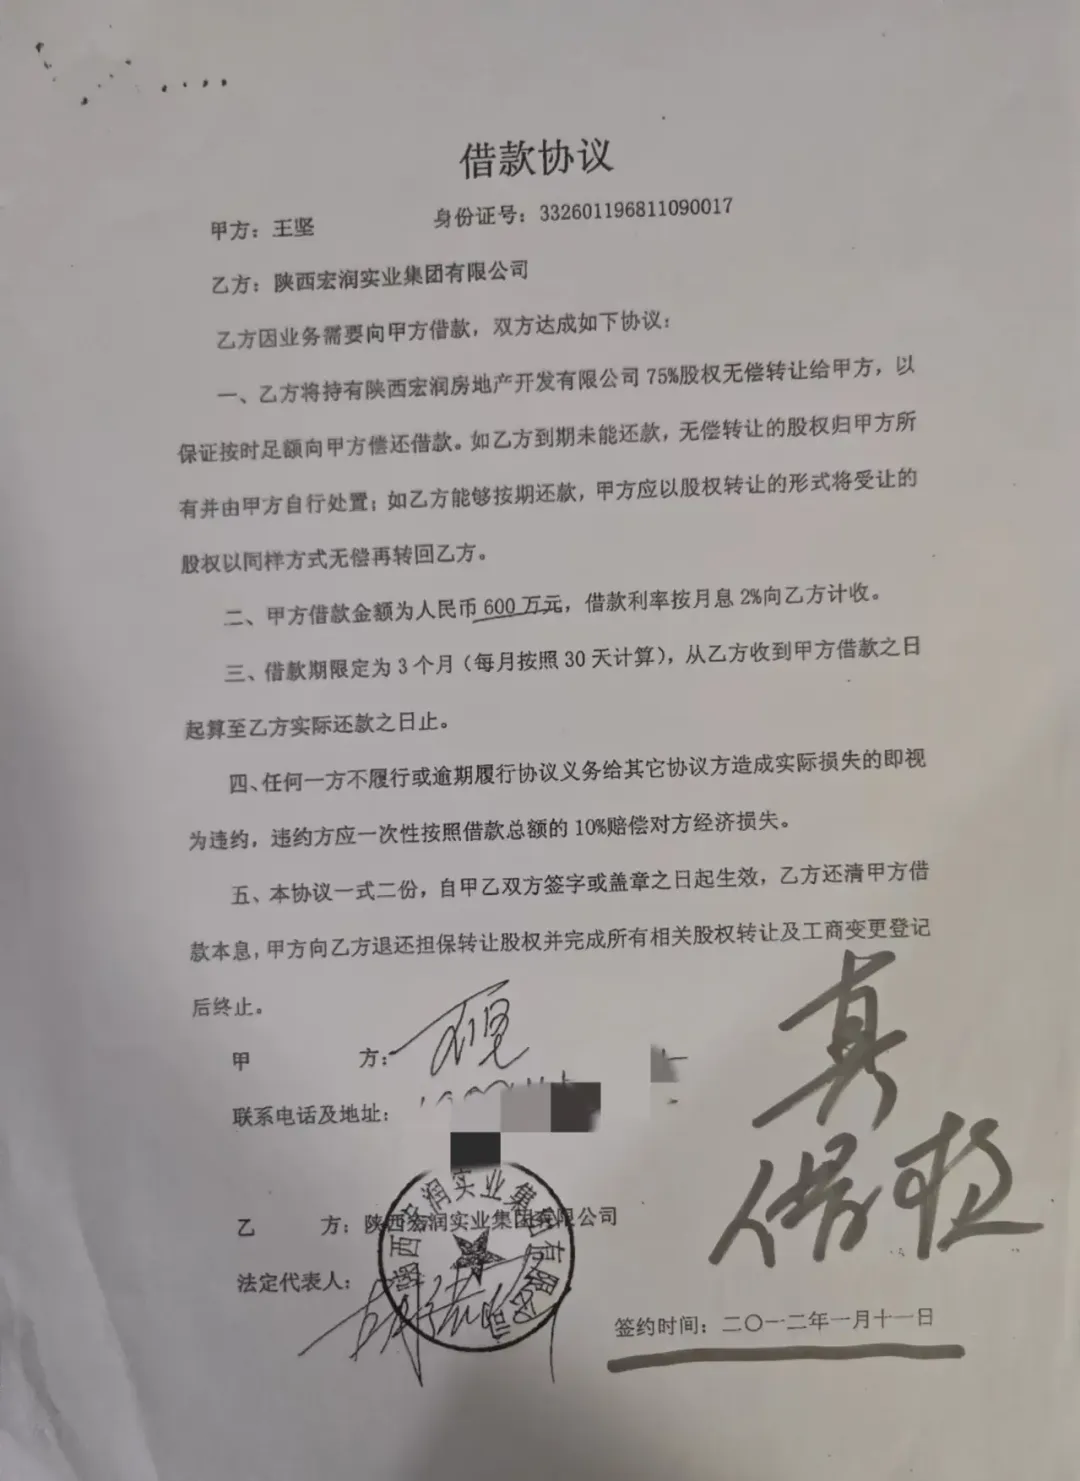 借款协议
甲方：王坚 身份证号：332601196811090017
乙方：陕西宏润实业集团有限公司
乙方因业务需要向甲方借款，双方达成如下协议：
一、乙方将持有陕西宏润房地产开发有限公司75%股权无偿转让给甲方，以
保证按时足额向甲方偿还借款。如乙方到期未能还款，无偿转让的股权归甲方所
有并由甲方自行处置；如乙方能够按期还款，甲方应以股权转让的形式将受让的
股权以同样方式无偿再转回乙方。
二、甲方借款金额为人民币600万元，借款利率按月息2%向乙方计收。
三、借款期限定为3个月（每月按照30天计算），从乙方收到甲方借款之日
起算至乙方实际还款之日止。
四、任何一方不履行或逾期履行协议义务给其它协议方造成实际损失的即视
为违约，违约方应一次性按照借款总额的10%赔偿对方经济损失。
五、本协议一式二份，自甲乙双方签字或盖章之日起生效，乙方还清甲方借
款本息，甲方向乙方退还担保转让股权并完成所有相关股权转让及工商变更登记
后终止。
甲 方：
联系电话及地址：
乙 方：陕西宏润实业集团有限公司
陕西宏润实业集团有限公司
法定代表人：
真
签约时间：二〇一二年一月十一日